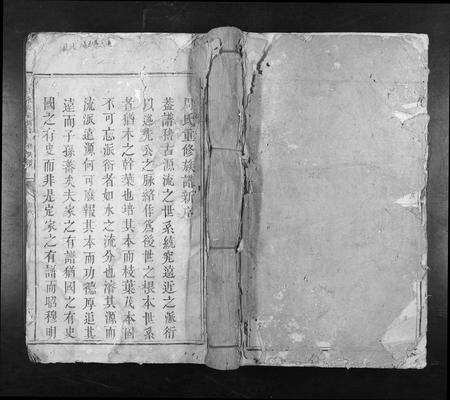 周氏重修族譜新序
蓋譜稽古源流之世系統究遠近之派衍
以遡先公之脉絡作為後世之根本世系
者猶木之幹葉也培其本而枝葉茂本固
不可忘派衍者如水之流分也濬其源而
流派遠源何可廢報其本而功德厚追其
遠而子孫蕃矣夫家之有譜猶國之有史
國之有史而非是定家之有譜而昭穆明